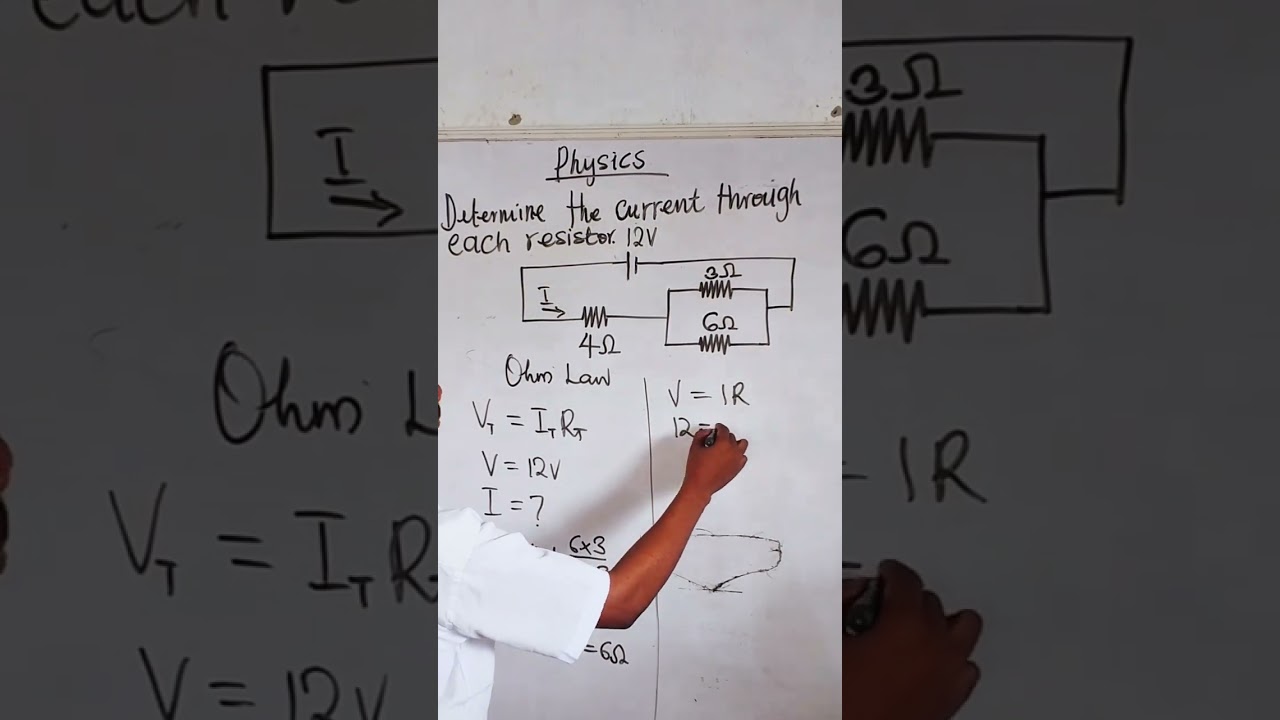 Physics
Determine the current through
each resistor. 12V
3Ω
I
6Ω
4Ω
Ohm Law
V_T = I_T R_T
V = 12V
I = ?
6×3
= 6Ω
V = IR
12 =